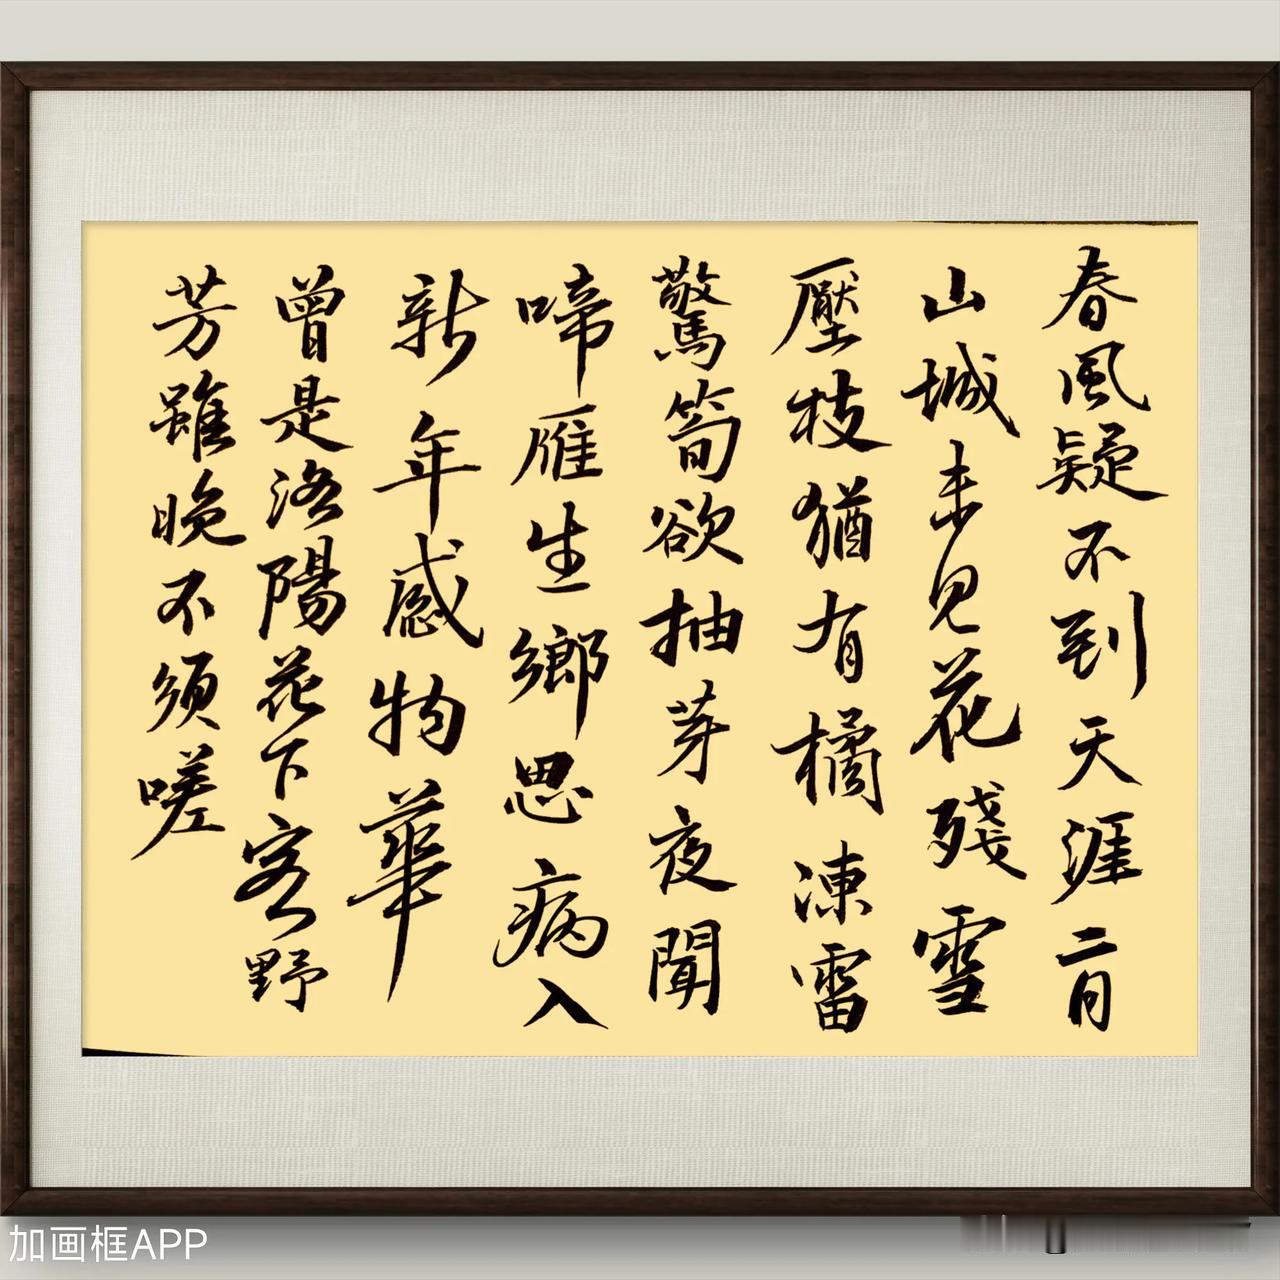 春風疑不到天涯二月
山城未見花殘雪
壓枝猶有橘凍雷
驚筍欲抽芽夜聞
啼雁生鄉思病入
新年感物華
曾是洛陽花下客野
芳雖晚不須嗟
加画框APP